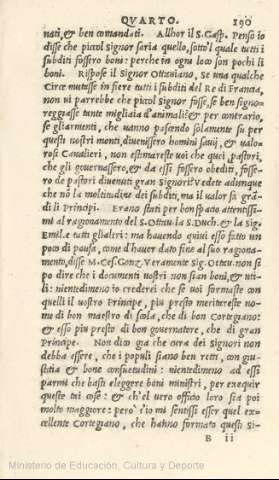 QVARTO. 190
nati, & ben comandati. Allhor il S. Gasp. Penso io
disse che piccol Signor saria quello, sotto'l quale tutti i
subditi fossero boni: perche in ogni loco son pochi li
boni. Rispose il Signor Ottaviano, Se una qualche
Circe mutasse in fiere tutti i subditi del Re di Francia,
non vi parrebbe che piccol Signor fosse, se ben signo-
reggiasse tante migliaia d'animali? & per contrario,
se gli armenti, che vanno pascendo solamente su per
questi nostri monti, divenissero homini savij, & valo-
rosi Cavalieri, non estimareste voi che quei pastori,
che gli governassero, & da essi fossero obediti, fosse-
ro de pastori divenuti gran Signori? vedete adunque
che nō la moltitudine dei subditi, ma il valor fa grā-
di li Principi. Erano stati per bon spatio attentissi-
mi al ragionamento del S. Ottav. la S. Duch. & la Sig.
Emil. e tutti gli altri: ma havendo quivi esso fatto un
poco di pausa, come d'haver dato fine al suo ragiona-
mento, disse M. Ces. Gonz. Veramente Sig. Ottav. non si
po dire che i documenti vostri non sian boni, & uti-
li: nientedimeno io crederei che se voi formaste con
quelli il vostro Principe, piu presto meritareste no-
me di bon maestro di scola, che di bon Cortegiano:
& esso piu presto di bon governatore, che di gran
Principe. Non dico gia che cura dei Signori non
debba essere, che i populi siano ben retti, con giu-
stitia & bone consuetudini: nientedimeno ad essi
parmi che basti eleggere boni ministri, per exequir
queste tai cose: & ch'el vero officio loro sia poi
molto maggiore: pero s'io mi sentissi esser quel ex-
cellente Cortegiano, che hanno formato questi Si-
B ii
Ministerio de Educación, Cultura y Deporte